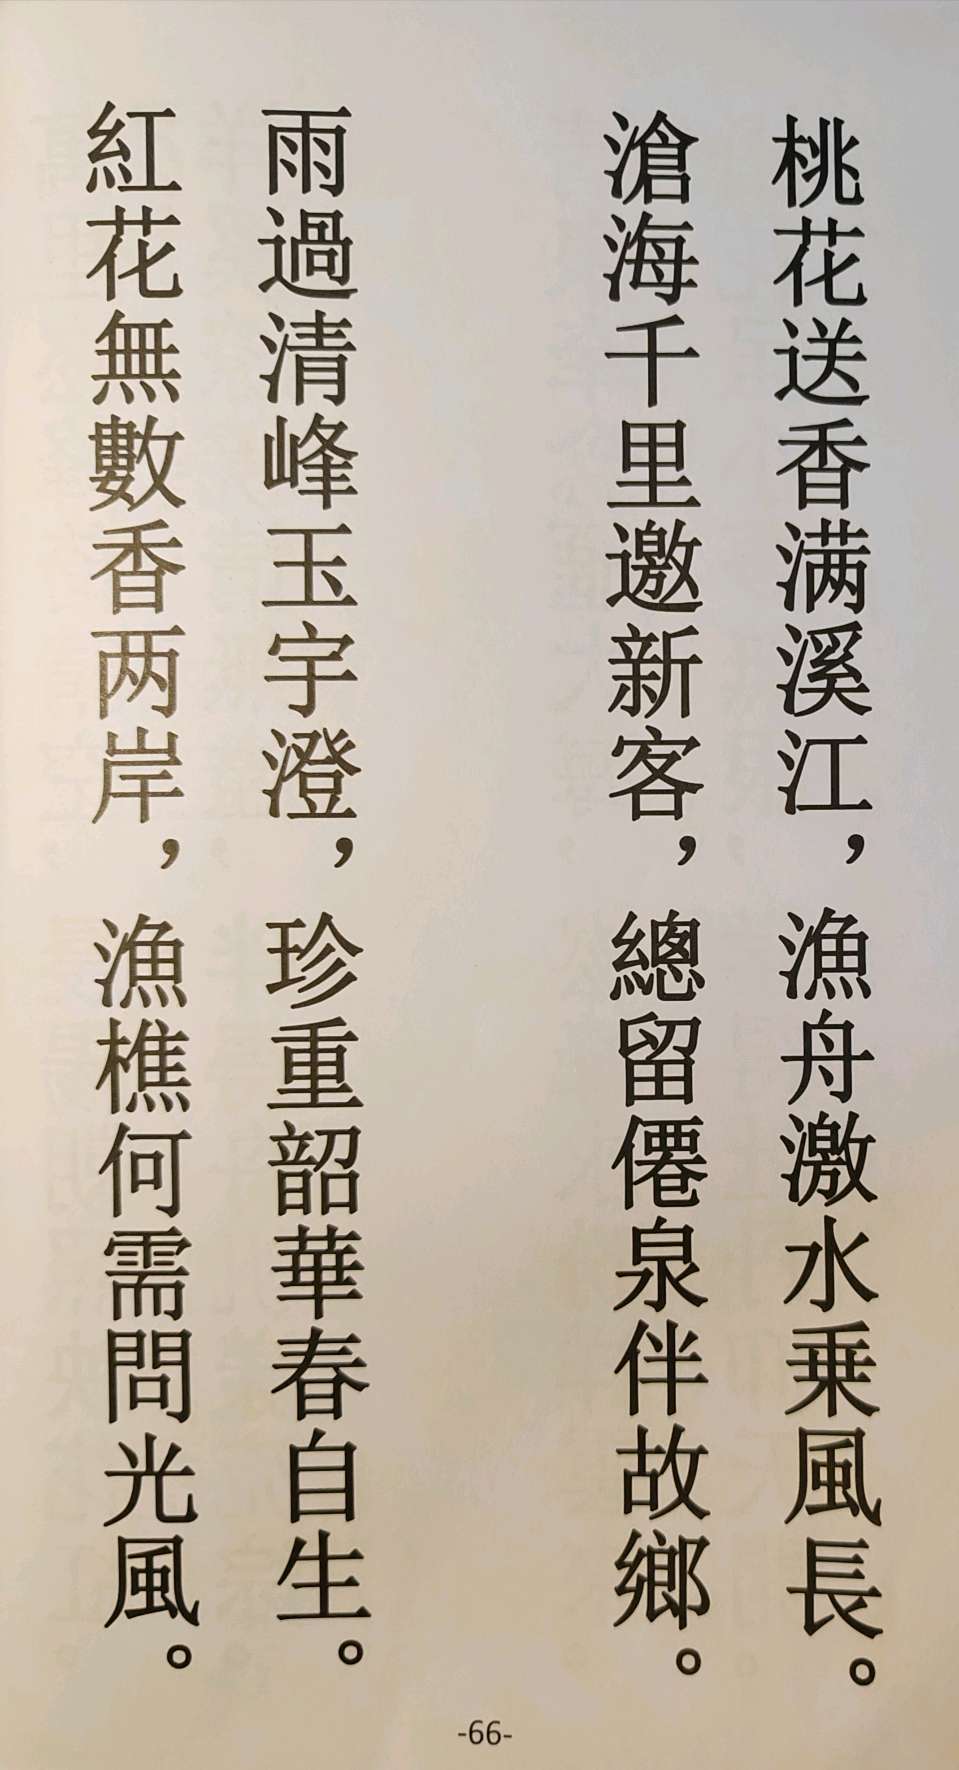 桃花送香满溪江，漁舟激水乗風長。
滄海千里邀新客，總留僊泉伴故鄉。
雨過清峰玉宇澄，珍重韶華春自生。
紅花無數香两岸，漁樵何需問光風。
-66-